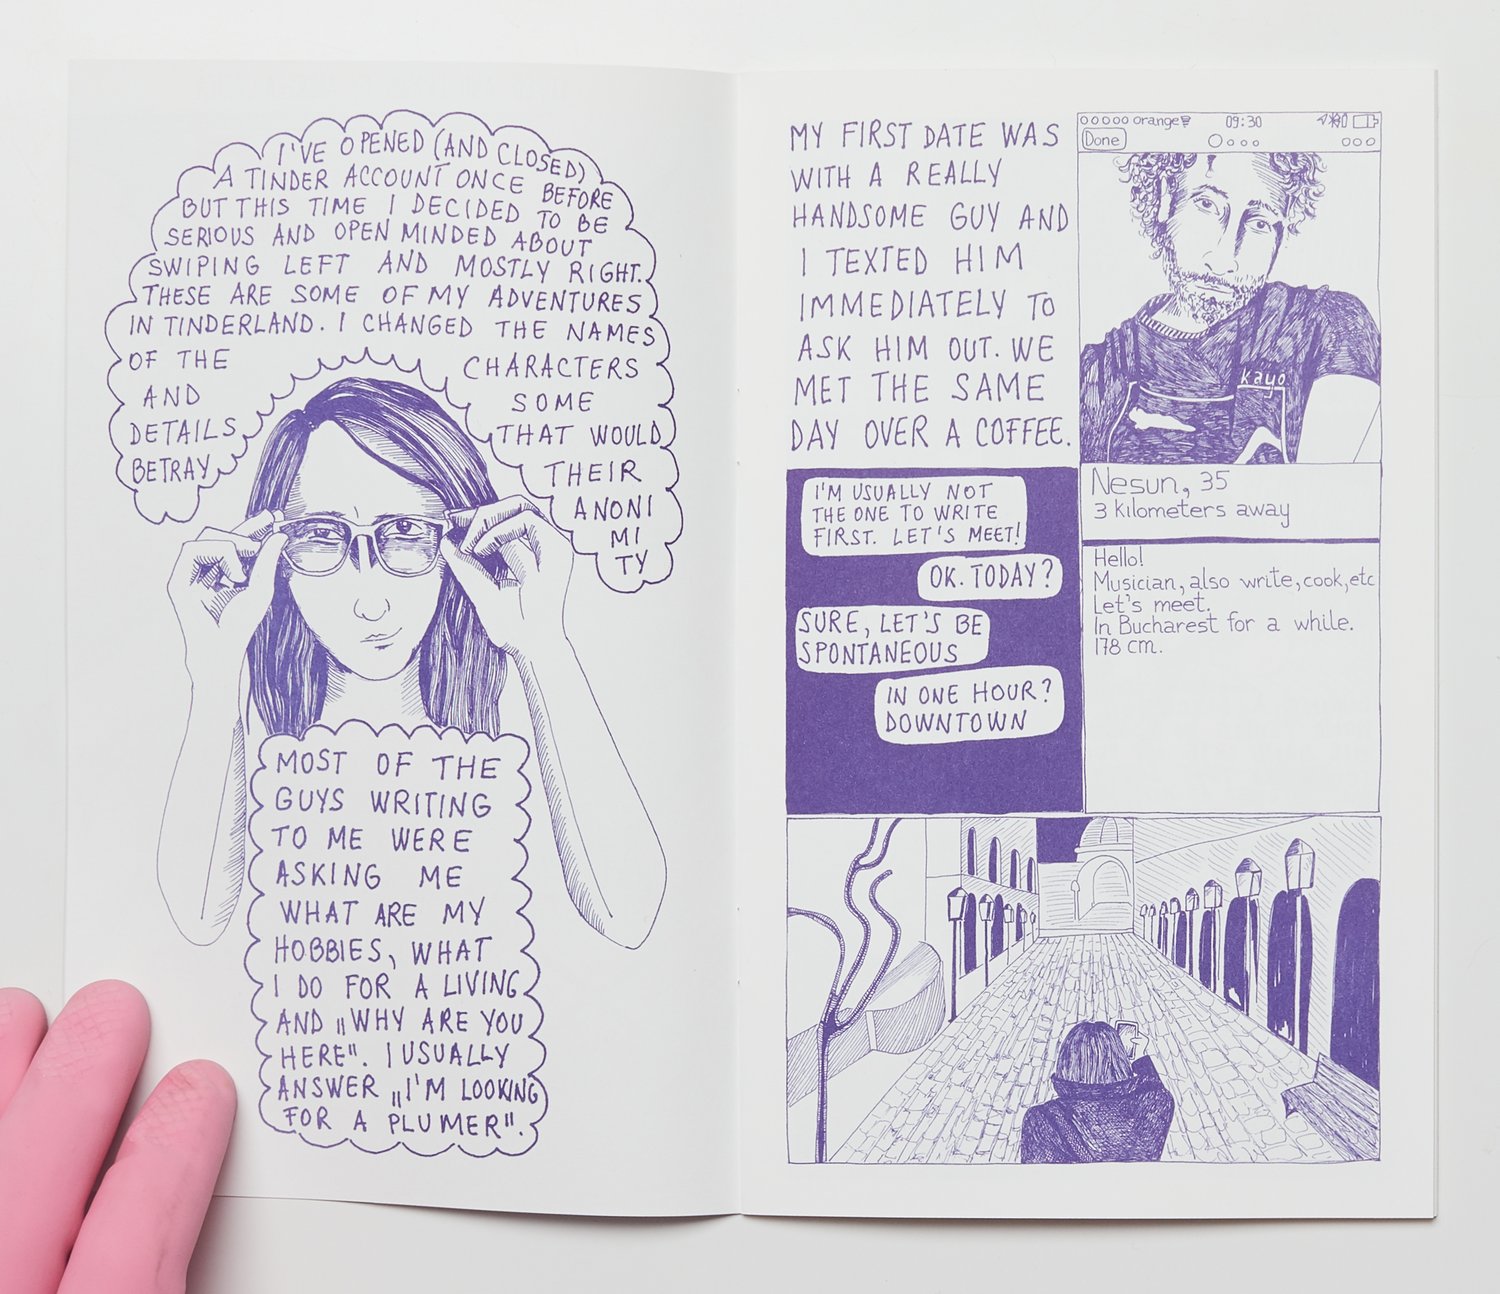 I'VE OPENED (AND CLOSED)
A TINDER ACCOUNT ONCE BEFORE
BUT THIS TIME I DECIDED TO BE
SERIOUS AND OPEN MINDED ABOUT
SWIPING LEFT AND MOSTLY RIGHT.
THESE ARE SOME OF MY ADVENTURES
IN TINDERLAND. I CHANGED THE NAMES
OF THE CHARACTERS
AND SOME
DETAILS THAT WOULD
BETRAY THEIR
ANONI
MI
TY
MOST OF THE
GUYS WRITING
TO ME WERE
ASKING ME
WHAT ARE MY
HOBBIES, WHAT
I DO FOR A LIVING
AND „WHY ARE YOU
HERE". I USUALLY
ANSWER „I'M LOOKING
FOR A PLUMER".
MY FIRST DATE WAS
WITH A REALLY
HANDSOME GUY AND
I TEXTED HIM
IMMEDIATELY TO
ASK HIM OUT. WE
MET THE SAME
DAY OVER A COFFEE.
orange 09:30
Done
kayo
Nesun, 35
3 kilometers away
Hello!
Musician, also write, cook, etc
Let's meet.
In Bucharest for a while.
178 cm.
I'M USUALLY NOT
THE ONE TO WRITE
FIRST. LET'S MEET!
OK. TODAY?
SURE, LET'S BE
SPONTANEOUS
IN ONE HOUR?
DOWNTOWN